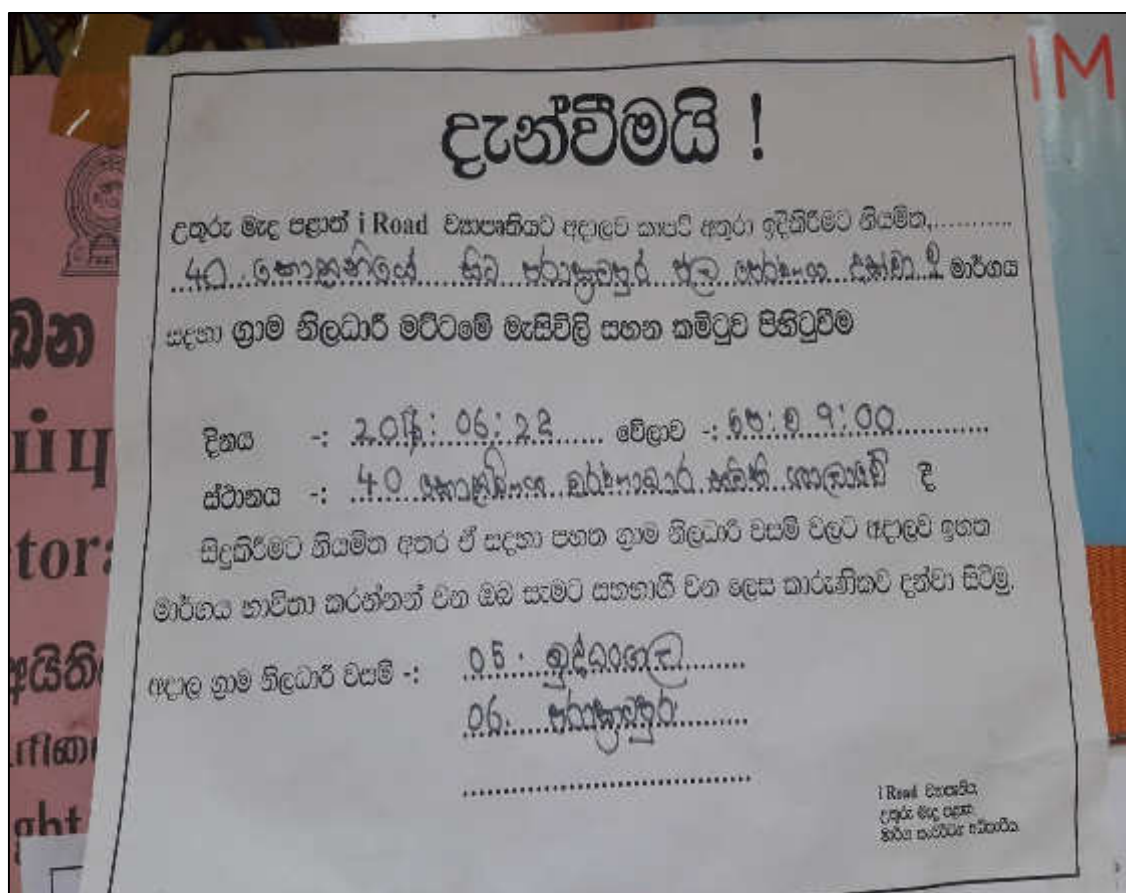 IM
දැන්වීමයි !
උතුරු මැද පළාත් i Road ව්‍යාපෘතියට අදාලව කාපට් අතුරා ඉදිකිරීමට නියමිත,............
40 සිට මාර්ගය
සදහා ග්‍රාම නිලධාරී මට්ටමේ මැසිවිලි සහන කමිටුව පිහිටුවීම
දිනය -: 06: 22 වේලාව -: පෙ: ව 9:00
ස්ථානය -: 40 දී
සිදුකිරීමට නියමිත අතර ඒ සදහා පහත ග්‍රාම නිලධාරී වසම් වලට අදාලව ඉහත
මාර්ගය භාවිතා කරන්නන් වන ඔබ සැමට සහභාගී වන ලෙස කාරුණිකව දන්වා සිටිමු.
අදාල ග්‍රාම නිලධාරී වසම් -: 05. බුද්ධංගල
06. පරාක්‍රමපුර
i Road ව්‍යාපෘතිය,
උතුරු මැද පළාත,
මාර්ග සංවර්ධන අධිකාරිය.
බන
ப்பு
tora
අයිති
ght